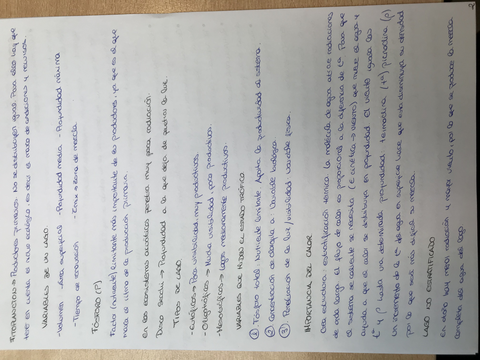 FITOPLANCTON → Productores primarios. No se distribuyen igual. Para ello hay que
tener en cuenta el nicho ecológico, es decir el rango de condiciones y recursos.
VARIABLES DE UN LAGO.
- Volumen - Área superficial - Profundidad media - Profundidad máxima
- Tiempo de renovación - Zmix → Zona de mezcla
FÓSFORO (P)
Factor (nutriente) limitante más importante de los productores, ya que es el que
marca el ritmo de la producción primaria.
En los ecosistemas acuáticos penetra muy poca radiación.
Disco Secchi → Profundidad a la que deja de penetrar la luz.
TIPOS DE LAGO.
- Eutróficos → Poca visibilidad, muy productivos.
- Oligotróficos → Mucha visibilidad, poco productivos.
- Mesotróficos → Lagos medianamente productivos.
VARIABLES QUE MIDEN EL ESTADO TRÓFICO
① Fósforo total. Nutriente limitante. Aporta la productividad al sistema
② Concentración de clorofila a. Variable biológica
③ Penetración de la luz/visibilidad. Variable física.
IMPORTANCIA DE CALOR
Crea estructura: estratificación térmica. La molécula de agua absorbe radiaciones
de onda larga. El flujo de calor es proporcional a la diferencia de tª. Para que
el sistema se caliente se necesita (E cinética → viento) que mueve el agua y
ayuda a que el calor se distribuya en profundidad. El viento iguala las
tª y ρ hasta una determinada profundidad: termoclina (tª) picnoclina (ρ)
Un incremento de la tª del agua en superficie hace que esta disminuya su densidad
por lo que será más difícil su mezcla.
LAGO NO ESTRATIFICADO
En otoño hay menos radiación y mayor viento, por lo que se produce la mezcla
completa del agua del lago.